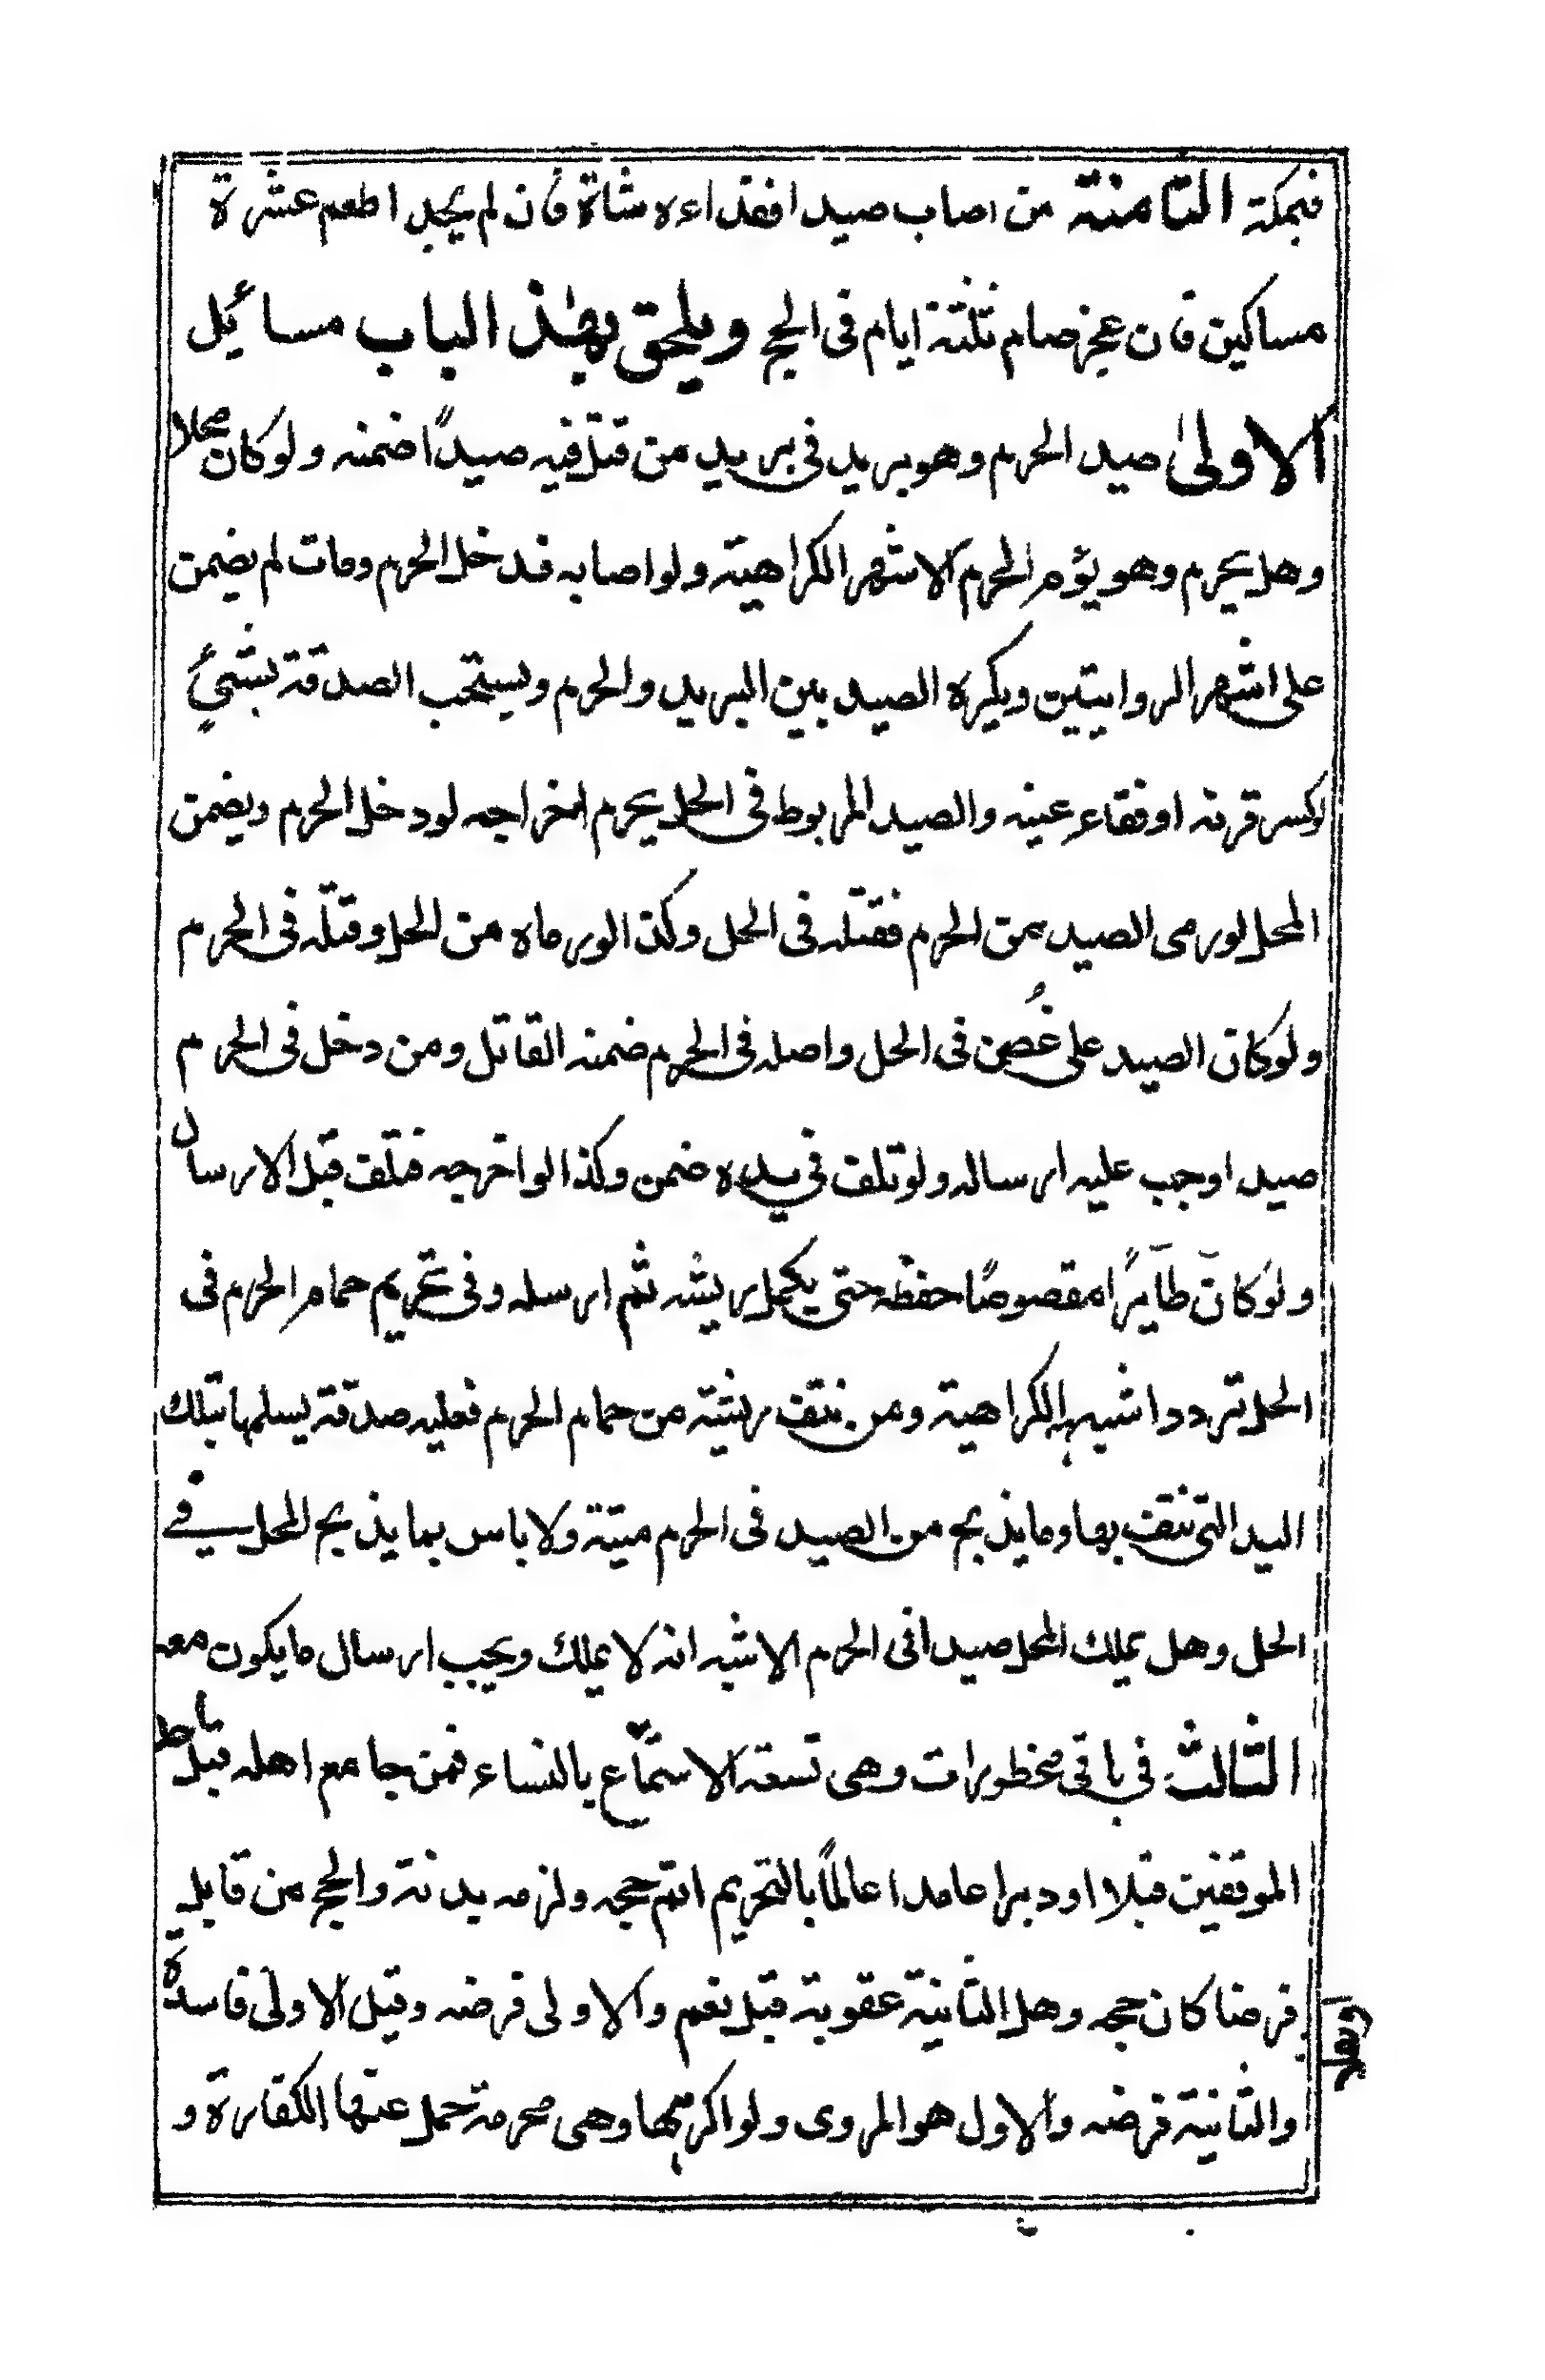 فبمكة الثامنة من اصاب صيدا ففداءه شاة فان لم يجد اطعم عشرة
مساكين فان عجز صام ثلثة ايام فى الحج ويلحق بهذ الباب مسائل
الاولىٰ صيد الحرم وهو بريد فى بريد من قتل فيه صيدًا ضمنه ولو كان محلا
وهل يحرم وهو يؤم الحرم الاشهر الكراهية ولو اصابه فدخل الحرم ومات لم يضمن
على اشهر الروايتين ويكره الصيد بين البريد والحرم ويستحب الصدقة بشئ
لوكسر قرنه او فقاء عينه والصيد المربوط فى الحل يحرم اخراجه لو دخل الحرم ويضمن
المحل لو رمى الصيد من الحرم فقتله فى الحل وكذا لو رماه من الحل وقتله فى الحرم
ولو كان الصيد على غُصن فى الحل واصله فى الحرم ضمنه القاتل ومن دخل فى الحرم
صيدا وجب عليه ارساله ولو تلف فى يده ضمن وكذا لو اخرجه فتلف قبل الارسال
ولو كان طايرًا مقصوصًا حفظه حتى يكمل ريشه ثم ارسله وفى تحريم حمام الحرم فى
الحل تردد اشبهه الكراهية ومن نتف ريشة من حمام الحرم فعليه صدقة يسلمها بتلك
اليد التى نتف بها وما يذبح من الصيد فى الحرم ميتة ولا باس بما يذبح المحل فى
الحل وهل يملك المحل صيدا فى الحرم الاشبه انه لا يملك ويجب ارسال ما يكون معه
الثالث فى باقى محظورات وهى تسعة الاستمتاع بالنساء فمن جامع اهله قبل احد
الموقفين قبلا او دبرا عامدا عالمًا بالتحريم اتم حجه ولزمه بدنة والحج من قابل
فرضا كان حجه وهل الثانية عقوبة قيل نعم والاولى فرضه وقيل الاولىٰ فاسدة
والثانية فرضه والاول هو المروى ولو اكرهها وهى محرمة حمل عنها الكفارة و